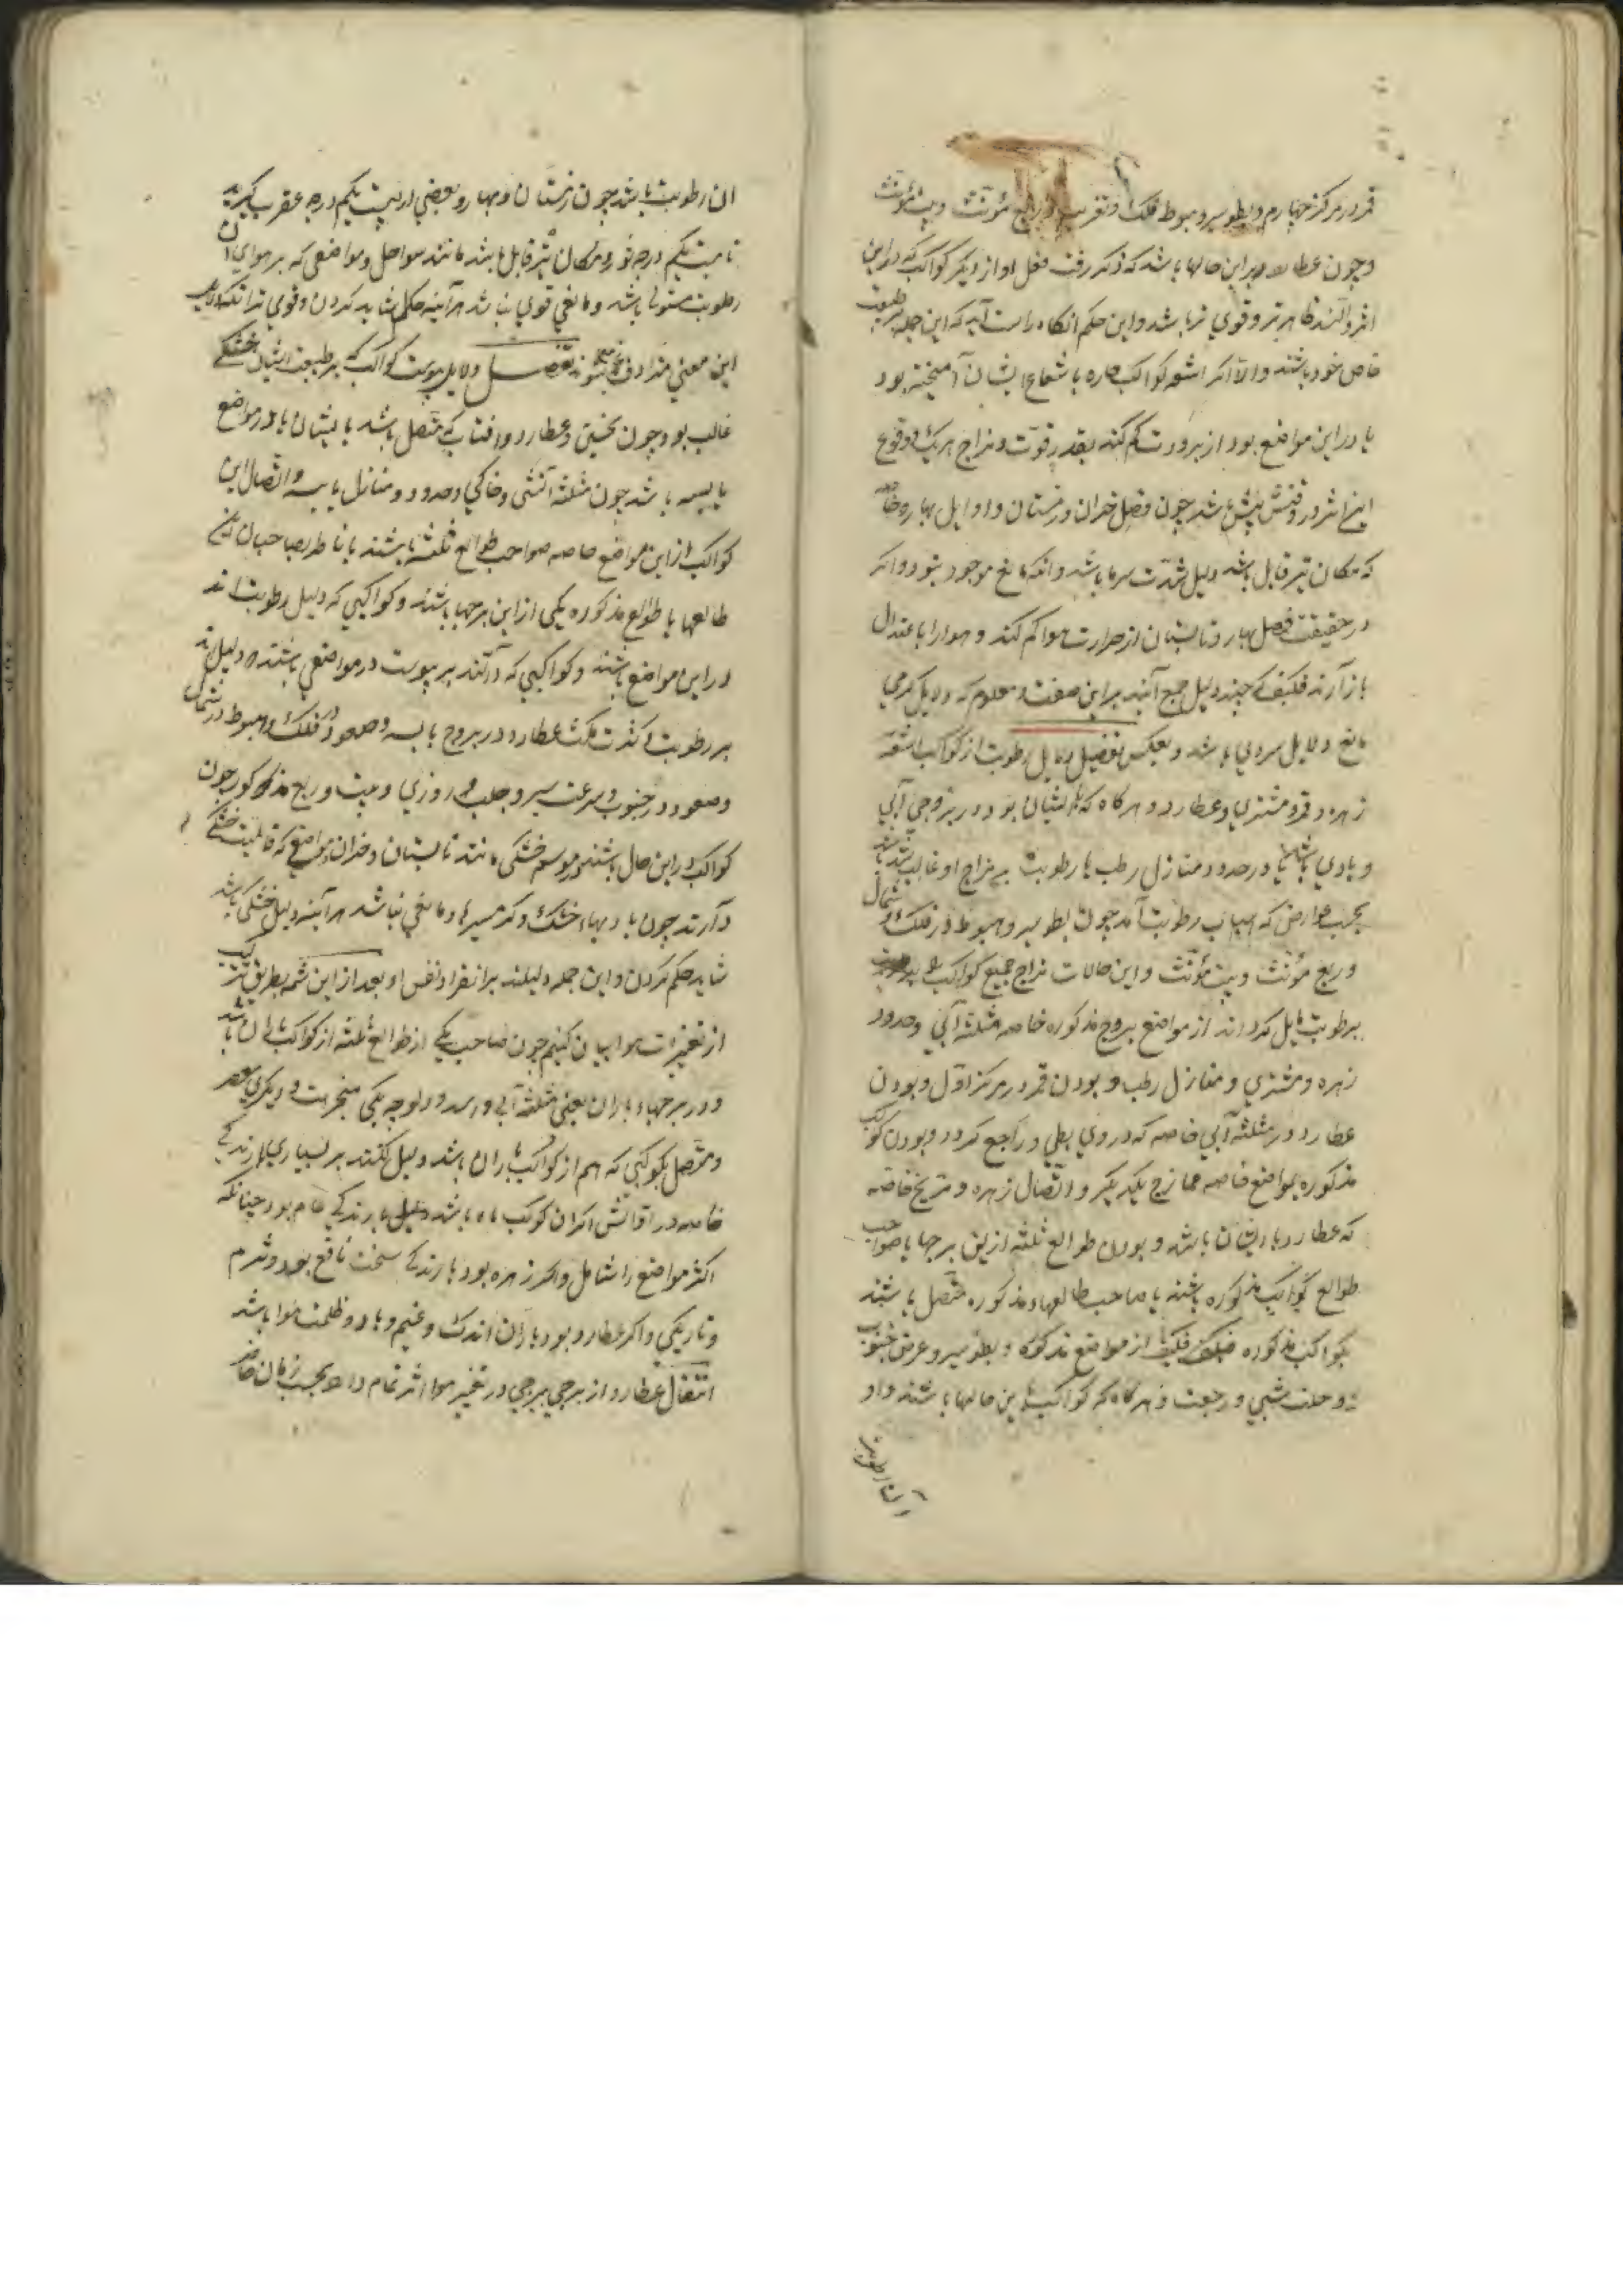 قمر در مرکز چهارم و بطو سیر و هبوط فلک و ربع مؤنث و بیت مؤنث
و چون عطارد برین حالها باشد که ذکر رفت فعل او از دیگر کواکب که در این
اثر دارند ظاهرتر و قوی تر باشد و این حکم انگاه راست آید که این جمله بر طبیعت
خاص خود باشند و الا اگر اشعه کواکب حاره با شعاع ایشان آمیخته بود
یا در این مواضع بود از برودت کم کند بقدر قوت و مزاج هر یک و وقوع
این اثر در وقتش بیش باشد چون فصل خزان و زمستان و اوایل بهار و خاصه
که مکان نیز قابل باشد دلیل شدت سرما باشد و انکه مانع موجود نبود و اگر
در حقیقت فصل بهار و تابستان از حرارت هوا کم کند و هوا را باعتدال
باز آرند فکیف که چند دلیل جمع آیند بر این صفت و معلوم که دلایل گرمی
مانع دلایل سردی باشد و بعکس تفصیل دلایل رطوبت از کواکب اشعه
زهره و قمر و مشتری و عطارد و هرگاه که با ایشان بود و در بروجی آبی
و بادی باشد یا در حدود و منازل رطب یا رطوبت بر مزاج او غالب شده باشد
بحسب عوارض که اسباب رطوبت آمد چون بطو سیر و هبوط در فلک و شمال
و ربع مؤنث و بیت مؤنث و این حالات مزاج جمیع کواکب
برطوبت مایل گرداند از مواضع بروج مذکوره خاصه مثلثه آبی و حدود
زهره و مشتری و منازل رطب و بودن قمر در مرکز اول و بودن
عطارد در مثلثه آبی خاصه که در وی بطی و راجع گردد و بودن کواکب
مذکوره بمواضع خاصه ممازج یکدیگر و اتصال زهره و مریخ خاصه
که عطارد با ایشان باشد و بودن طوالع ثلثه ازین برجها یا صواحب
طوالع کواکب مذکوره باشند یا صاحب طالعهاء مذکوره متصل باشند
بکواکب مذکوره فکیف از مواضع مذکوره و بطو سیر و عرض جنوب
و حلت شبی و رجعت و هرگاه که کواکب باین حالها باشند و در
ان رطوبت باشد چون زمستان و بهار و بعضی از بیست یکم درجه عقرب گیرند
تا بیست یکم درجه ثور و مکان نیز قابل باشد مانند سواحل و مواضعی که بر هوای آن
رطوبت مستولی باشد و مانعی قوی نباشد هر آینه حکم شاید کردن و قوی تر انکه دلایل
این معنی مترادف شوند تفصیل دلایل یبوست کواکب که بر طبیعت ایشان خشکی
غالب بود چون نحسین و عطارد و آفتاب که متصل باشد بایشان یا در مواضع
یابسه باشد چون مثلثه آتشی و خاکی و حدود و منازل یابسه و اتصال این
کواکب از این مواضع خاصه صواحب طوالع ثلثه باشند یا ناظر بصاحبان این
طالعها یا طوالع مذکوره یکی از این برجها باشند و کواکبی که دلیل رطوبت اند
در این مواضع باشند و کواکبی که دالند بر یبوست در مواضعی باشند که دلیل اند
بر رطوبت و کثرت مکث عطارد در بروج یابسه و صعود در فلک و هبوط در شمال
و صعود در جنوب و سرعت سیر و جلب روزی و بیت و ربع مذکور چون
کواکب در این حال باشند و موسم خشکی مانند تابستان و خزان و مواضع که قابلیت خشکی
دارند چون بادیهاء خشک و گرمسیرها و مانعی نباشد هر آینه دلیل خشکی باشد
شاید حکم کردن و این جمله دلیلند بر انفراد نفس او بعد از این شمه بطریق ترکیب
از تغیرات هوا بیان کنیم چون صاحب یکی از طوالع ثلثه از کواکب باران باشد
و در برجهاء باران یعنی مثلثه آبی و اسد و دلو چه یکی متحیر است و دیگری
و متصل بکوکبی که هم از کواکب باران باشد دلیل کنند بر بسیاری بارندگی
خاصه در اوقاتش اگر ان کوکب ماه باشد دلیل بارندگی عام بود چنانکه
اکثر مواضع را شامل و اگر زهره بود بارندگی سخت نافع بود و شرم
و تاریکی و اگر عطارد بود باران اندک و غیم و باد و ظلمت هوا باشد
انتقال عطارد از برجی ببرجی در تغییر هوا اثر تمام دارد بحسب زمان خاصه